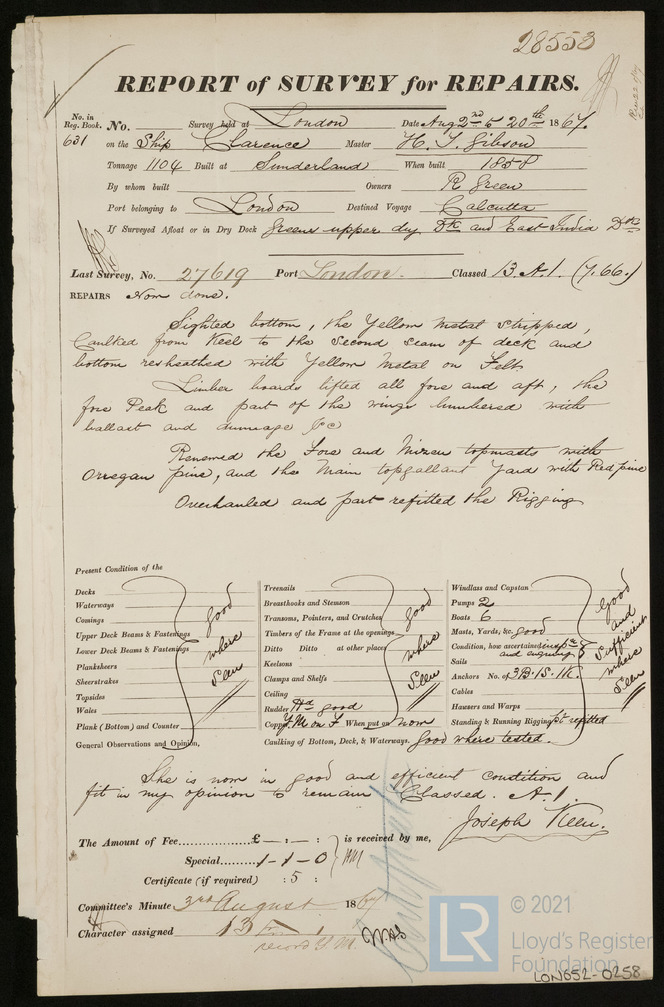 28553
REPORT of SURVEY for REPAIRS.
No. in Reg. Book. No. Survey held at London Date Aug 2nd & 20th 1867.
631 on the Ship Clarence Master H. T. Gibson
Tonnage 1104 Built at Sunderland When built 1858
By whom built Owners R Green
Port belonging to London Destined Voyage Calcutta
If Surveyed Afloat or in Dry Dock Greens upper dry Dk and East India Dks
Last Survey, No. 27619 Port London. Classed 13 A.1. (7.66.)
REPAIRS Now done.
Sighted bottom, the Yellow Metal stripped,
Caulked from Keel to the second seam of deck and
bottom resheathed with Yellow Metal on Felt.
Limber boards lifted all fore and aft, the
fore Peak and part of the wings lumbered with
ballast and dunnage &c
Renewed the Fore and Mizen topmasts with
Orregan pine, and the Main topgallant Yard with Red pine
Overhauled and part refitted the Rigging
Present Condition of the
Decks
Waterways
Comings
Upper Deck Beams & Fastenings
Lower Deck Beams & Fastenings
Planksheers
Sheerstrakes
Topsides
Wales
Plank (Bottom) and Counter
good where seen
General Observations and Opinion,
Treenails
Breasthooks and Stemson
Transoms, Pointers, and Crutches
Timbers of the Frame at the openings
Ditto Ditto at other places
Keelsons
Clamps and Shelfs
Ceiling
good where seen
Rudder Hd good
Copper Y.M on F. When put on now
Caulking of Bottom, Deck, & Waterways. Good where tested.
Windlass and Capstan
Pumps 2
Boats 6
Masts, Yards, &c. good
Condition, how ascertained inspn and enquiry
Sails
Anchors No. of 3.B.1S.1K.
Cables
Hausers and Warps
Standing & Running Rigging Pt refitted
Good and sufficient where seen
She is now in good and efficient condition and
fit in my opinion to remain Classed. A.1.
Joseph Keen.
The Amount of Fee £ - : - : is received by me,
Special 1 - 1 - 0
Certificate (if required) : 5 :
Committee's Minute 3rd August 1867
Character assigned 13 A 1
record Y.M.
© 2021
LR
Lloyd's Register
Foundation
LON652-0258